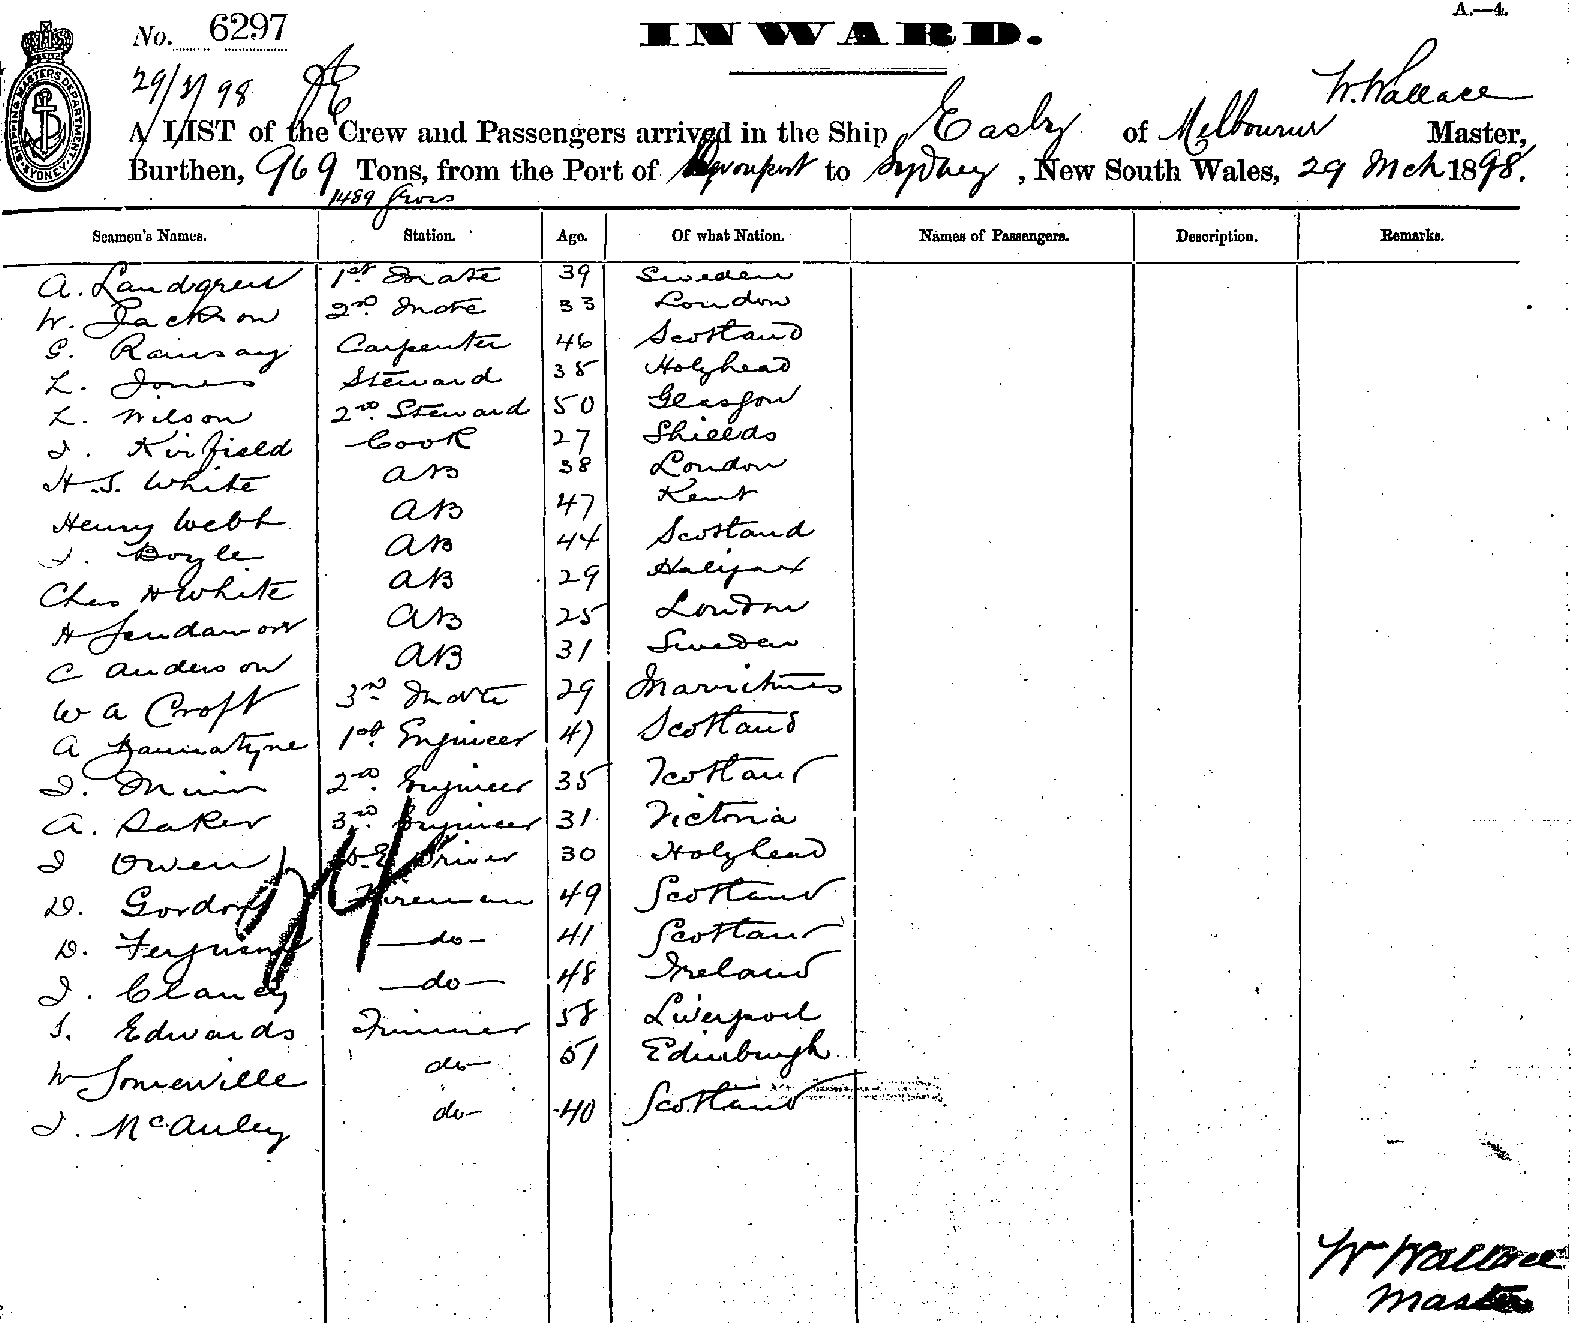 No. 6297
INWARD.
A.—4.
SHIPPING MASTERS DEPARTMENT SYDNEY
29/3/98
W. Wallace
A LIST of the Crew and Passengers arrived in the Ship Easby of Melbourne Master,
Burthen, 969 Tons, from the Port of Devonport to Sydney, New South Wales, 29 Mch 1898.
1489 Gross
Seamen's Names. Station. Age. Of what Nation. Names of Passengers. Description. Remarks.
A. Landgren 1st Mate 39 Sweden
W. Jackson 2nd Mate 33 London
G. Ramsay Carpenter 46 Scotland
L. Jones Steward 38 Holyhead
L. Wilson 2nd Steward 50 Glasgow
J. Kirfield Cook 27 Shields
H. S. White AB 38 London
Henry Webb AB 47 Kent
J. Boyle AB 44 Scotland
Chas H White AB 29 Halifax
H AB 25 London
C Anderson AB 31 Sweden
W A Croft 3rd Mate 29 Mauritius
A Bannatyne 1st Engineer 47 Scotland
J. Muir 2nd Engineer 35 Scotland
A. Baker 3rd Engineer 31 Victoria
J Owen D.E. Driver 30 Holyhead
D. Gordon Fireman 49 Scotland
D. Ferguson —do— 41 Scotland
J. Clancy —do— 48 Ireland
S. Edwards Trimmer 58 Liverpool
W Somerville do— 51 Edinburgh
J. McAuley do— 40 Scotland
Wm Wallace
Master